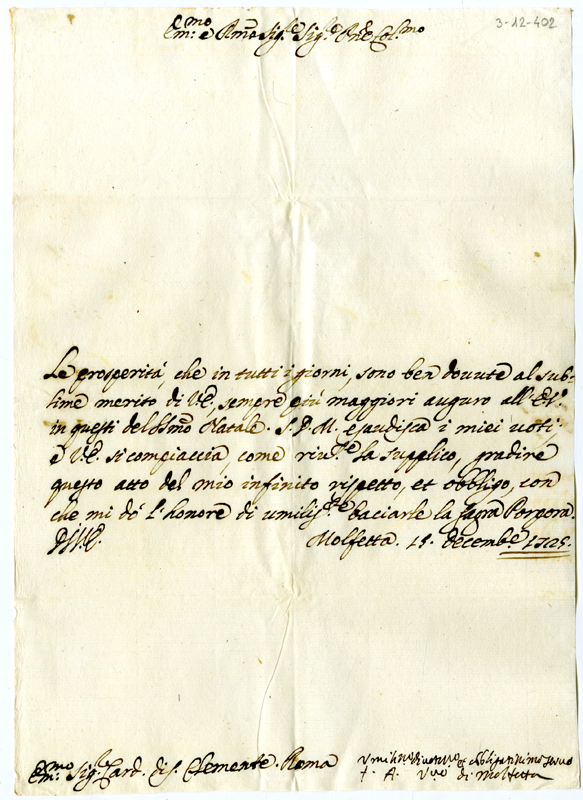 3-12-402
Em:mo e Rmo Sig.re Sig.re Pne Col.mo
Le prosperità, che in tutti i giorni, sono ben dovute al sub-
lime merito di V.E. sempre più maggiori auguro all'E.V.
in questi del SSmo Natale. S.D.M. esaudisca i miei voti
e V.E. si compiaccia, come riv.te La supplico, gradire
questo atto del mio infinito rispetto, et obbligo, con
che mi dò l'honore di umiliss.te baciarle la sagra Porpora
D.V.E. Molfetta. 15. decemb.e 1725.
Em:mo Sig.r Card. di S. Clemente. Roma
Umiliss.o Divotiss.o et obbligatissimo servo
F. A. V.vo di Molfetta